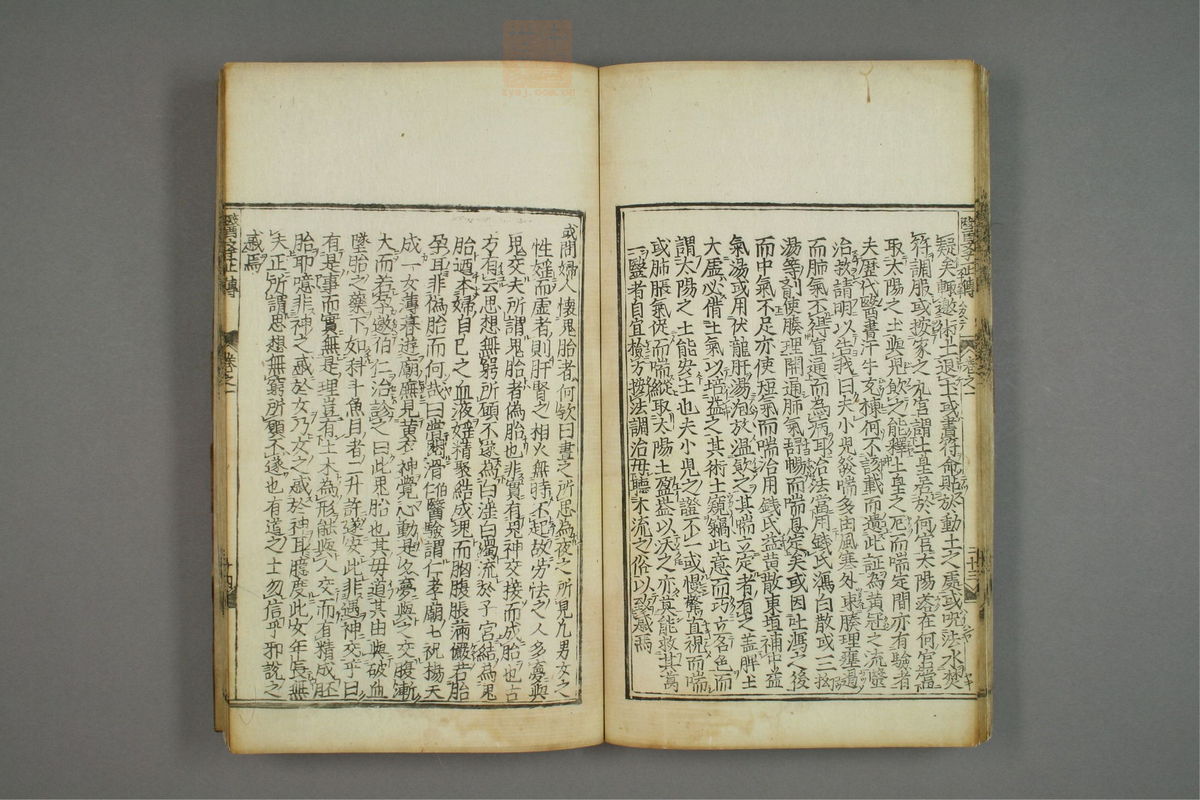 疑矣輒邀術士退土或書符命貼於動土之處或呪法水焚
符調服或按家之九宮謂土皇居於何宮太陽落在何宮當
取太陽之土與兒飲之能釋土皇之厄而喘定間亦有驗者
夫歷代醫書汗牛充棟何不該載而遺此証為黃冠之流盬
治救請明以告我曰夫小兒發喘多由風寒外束腠理壅遏
而肺氣不得宣通而為病耳治法當用錢氏瀉白散或三拗
湯等劑使腠理開通肺氣舒暢而喘息定矣或因吐瀉之後
而中氣不足亦使短氣而喘治用錢氏益黃散東垣補中益
氣湯或用伏龍肝湯泡放溫飲之其喘立定者有之蓋脾土
大虛必借土氣以培益之其術士窺竊此意而巧立名色而
謂太陽之土能安土也夫小兒之證不一或慢驚直視而喘
或肺脹氣促而喘縱取太陽土盈盎以沃之亦莫能救其萬
一醫者自宜檢方按法調治毋聽末流之俗以致惑焉
醫學正傳
卷之一
二十三
或問婦人懷鬼胎者何歟曰晝之所思為夜之所見凡男女之
性婬而虛者則肝腎之相火無時不起故勞怯之人多夢與
鬼交夫所謂鬼胎者偽胎也非實有鬼神交接而成胎也古
方有云思想無窮所願不遂為白淫白濁流於子宮結為鬼
胎迺本婦自己之血液婬精聚結成塊而胸腹脹滿儼若胎
孕耳非偽胎而何哉曰嘗閱滑伯仁醫驗謂仁孝廟祝楊天
成一女薄暮遊廟廡見黃衣神覺心動是夕夢與之交腹漸
大而若孕邀伯仁治診之曰此鬼胎也其母道其由與破血
墜胎之藥下如蝌蚪魚目者二升許遂安此非遇神交乎曰
有是事而實無是理豈有土木為形能與人交而有精成胚
胎耶噫非神之惑於女乃女之惑於神耳臆度此女年長無
夫正所謂思想無窮所願不遂也有道之士勿信乎邪說之
惑焉
醫學正傳
卷之一
二十四